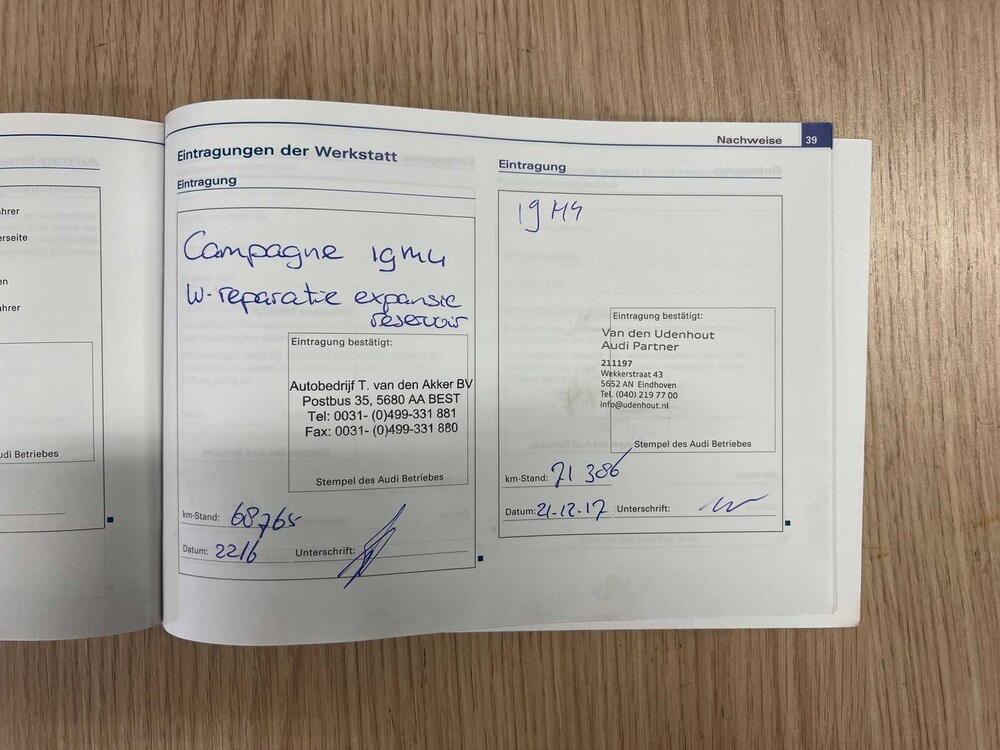 hrer
erseite
en
hrer
udi Betriebes
Nachweise 39
Eintragungen der Werkstatt
Eintragung
Campagne 19M4
W-reparatie expansie
reservoir
Eintragung bestätigt:
Autobedrijf T. van den Akker BV
Postbus 35, 5680 AA BEST
Tel: 0031- (0)499-331 881
Fax: 0031- (0)499-331 880
Stempel des Audi Betriebes
km-Stand: 68765
Datum: 22/6 Unterschrift:
Eintragung
19M4
Eintragung bestätigt:
Van den Udenhout
Audi Partner
211197
Wekkerstraat 43
5652 AN Eindhoven
Tel. (040) 219 77 00
info@udenhout.nl
Stempel des Audi Betriebes
km-Stand: 71 386
Datum: 21-12-17 Unterschrift: